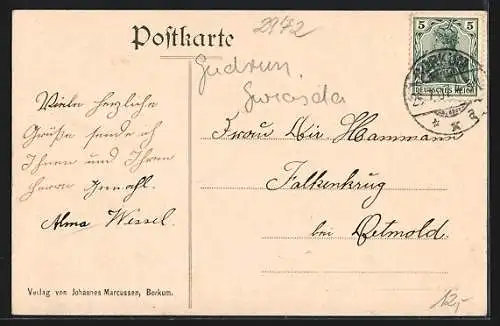 Postkarte
2972
Gudrun
5
DEUTSCHES REICH
BORKUM
Viele herzliche
Grüße sende ich
Ihnen und Ihrem
Herrn Gemahl.
Alma Wessel.
Frau Dir Hammann
Falkenkrug
bei Detmold.
Verlag von Johannes Marcussen, Borkum.
12,-